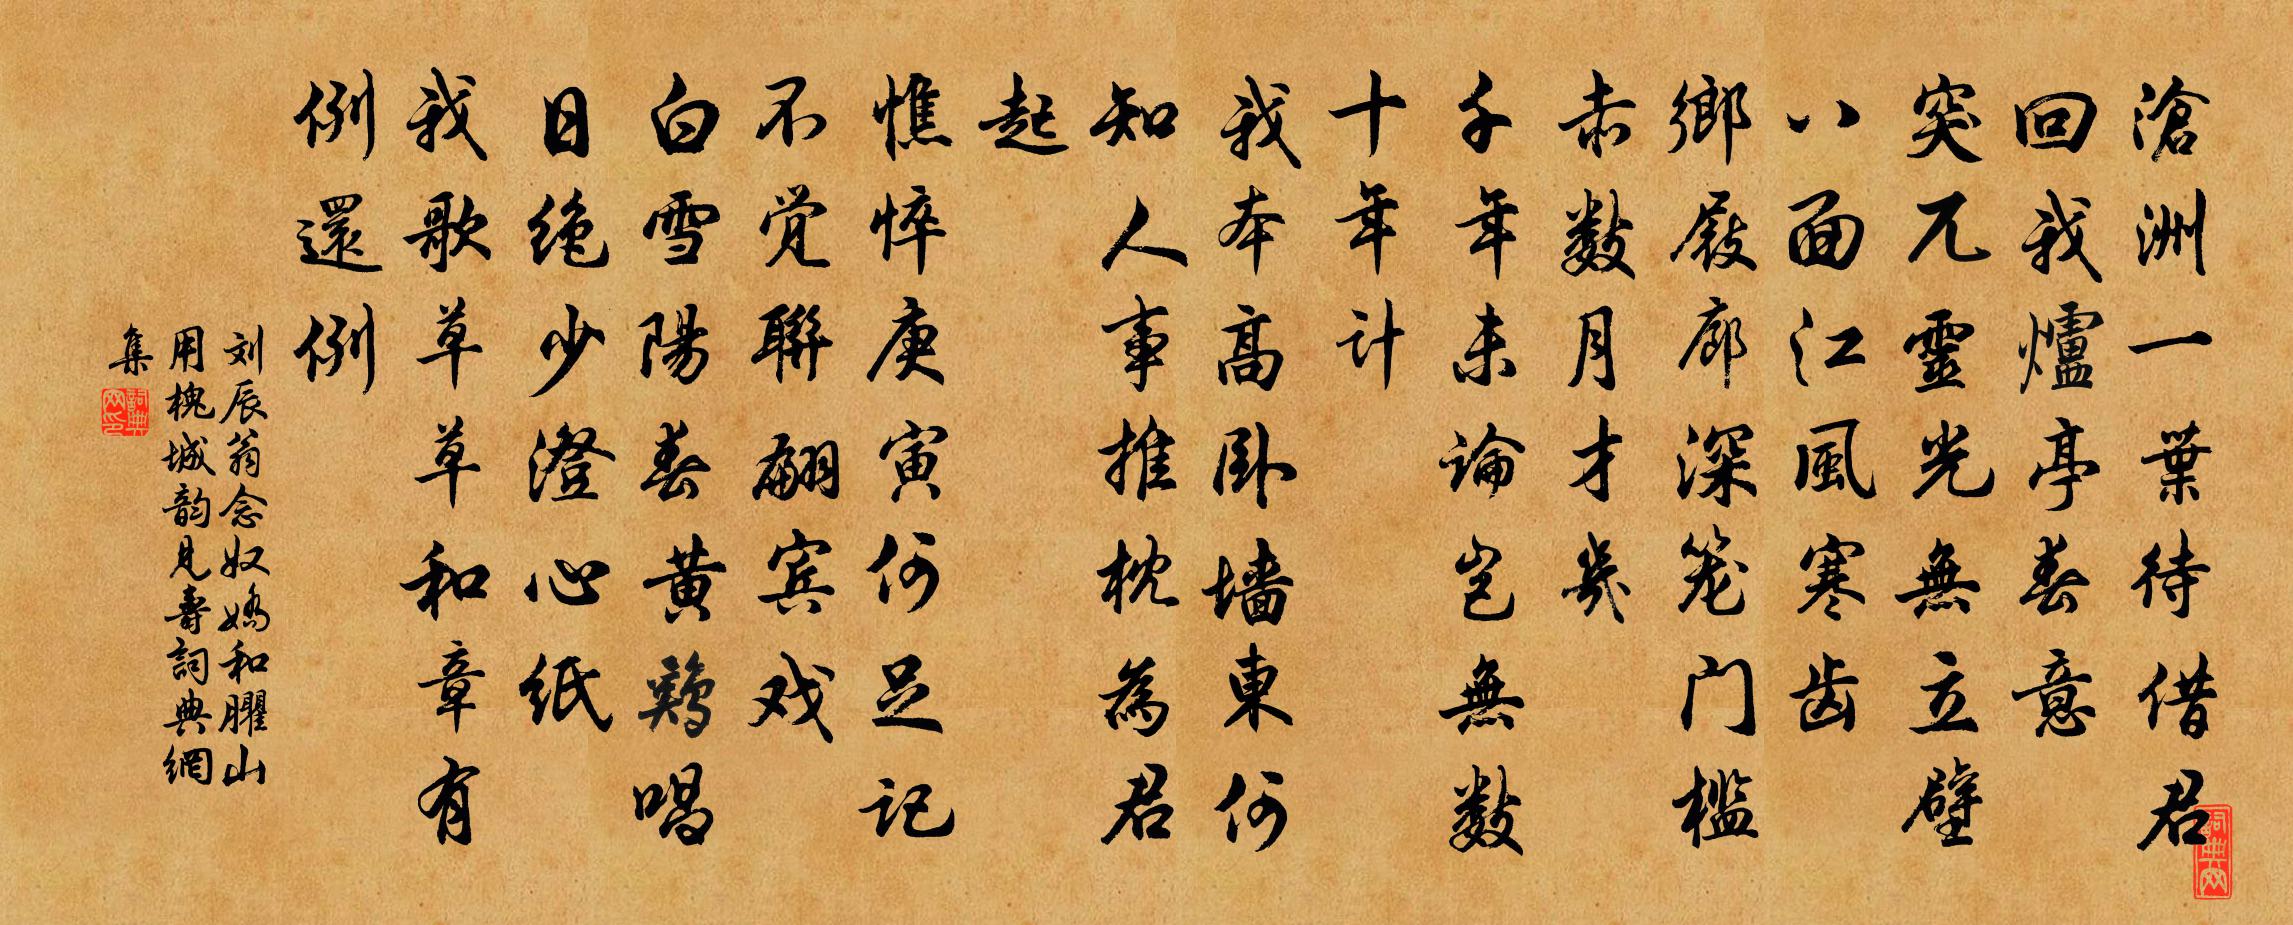 滄洲一葉待借君
回我爐亭春意
突兀靈光無立壁
八面江風寒齿
鄉屐廊深笼门槛
赤数月才幾
千年未論岂無数
十年计
我本高卧墙東何
知人事推枕為君
起
憔悴庚寅何足記
不觉聯翩宾戏
白雪陽春黄鷄唱
日绝少澄心纸
我歌草草和章有
例還例
刘辰翁念奴嬌和臞山
用槐城韵見壽詞典網
集
詞典网印
詞典网